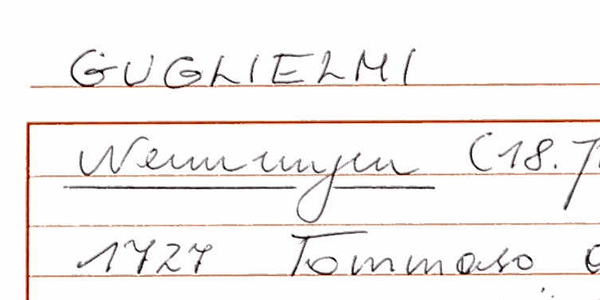 GUGLIELMI
Nennungen (18.
1727 Tommaso